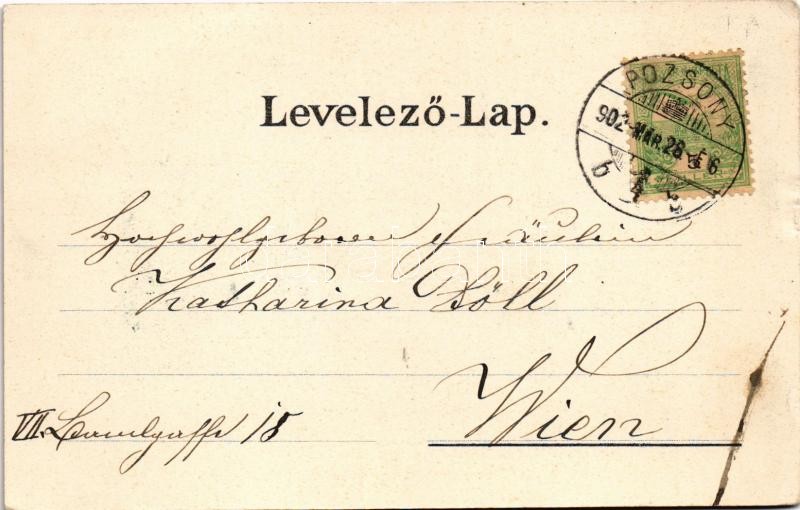 Levelező-Lap.
POZSONY
902 MÁR. 28
b
Hochwohlgeboren Fräulein
Katharina Böll
Wien
VII.
18